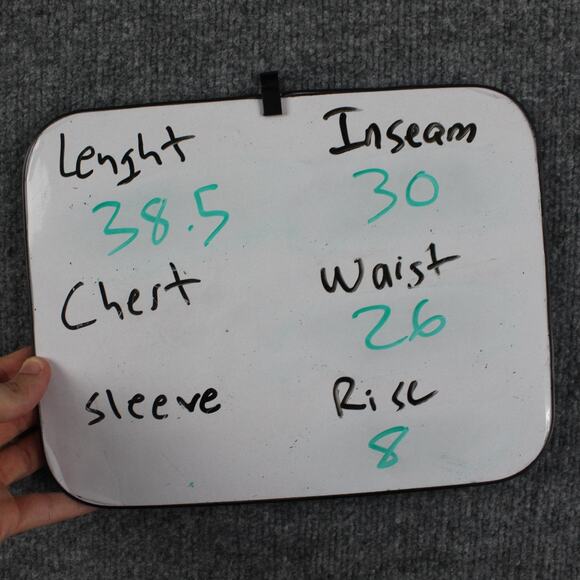 Lenght
38.5
Chest
sleeve
Inseam
30
Waist
26
Rise
8